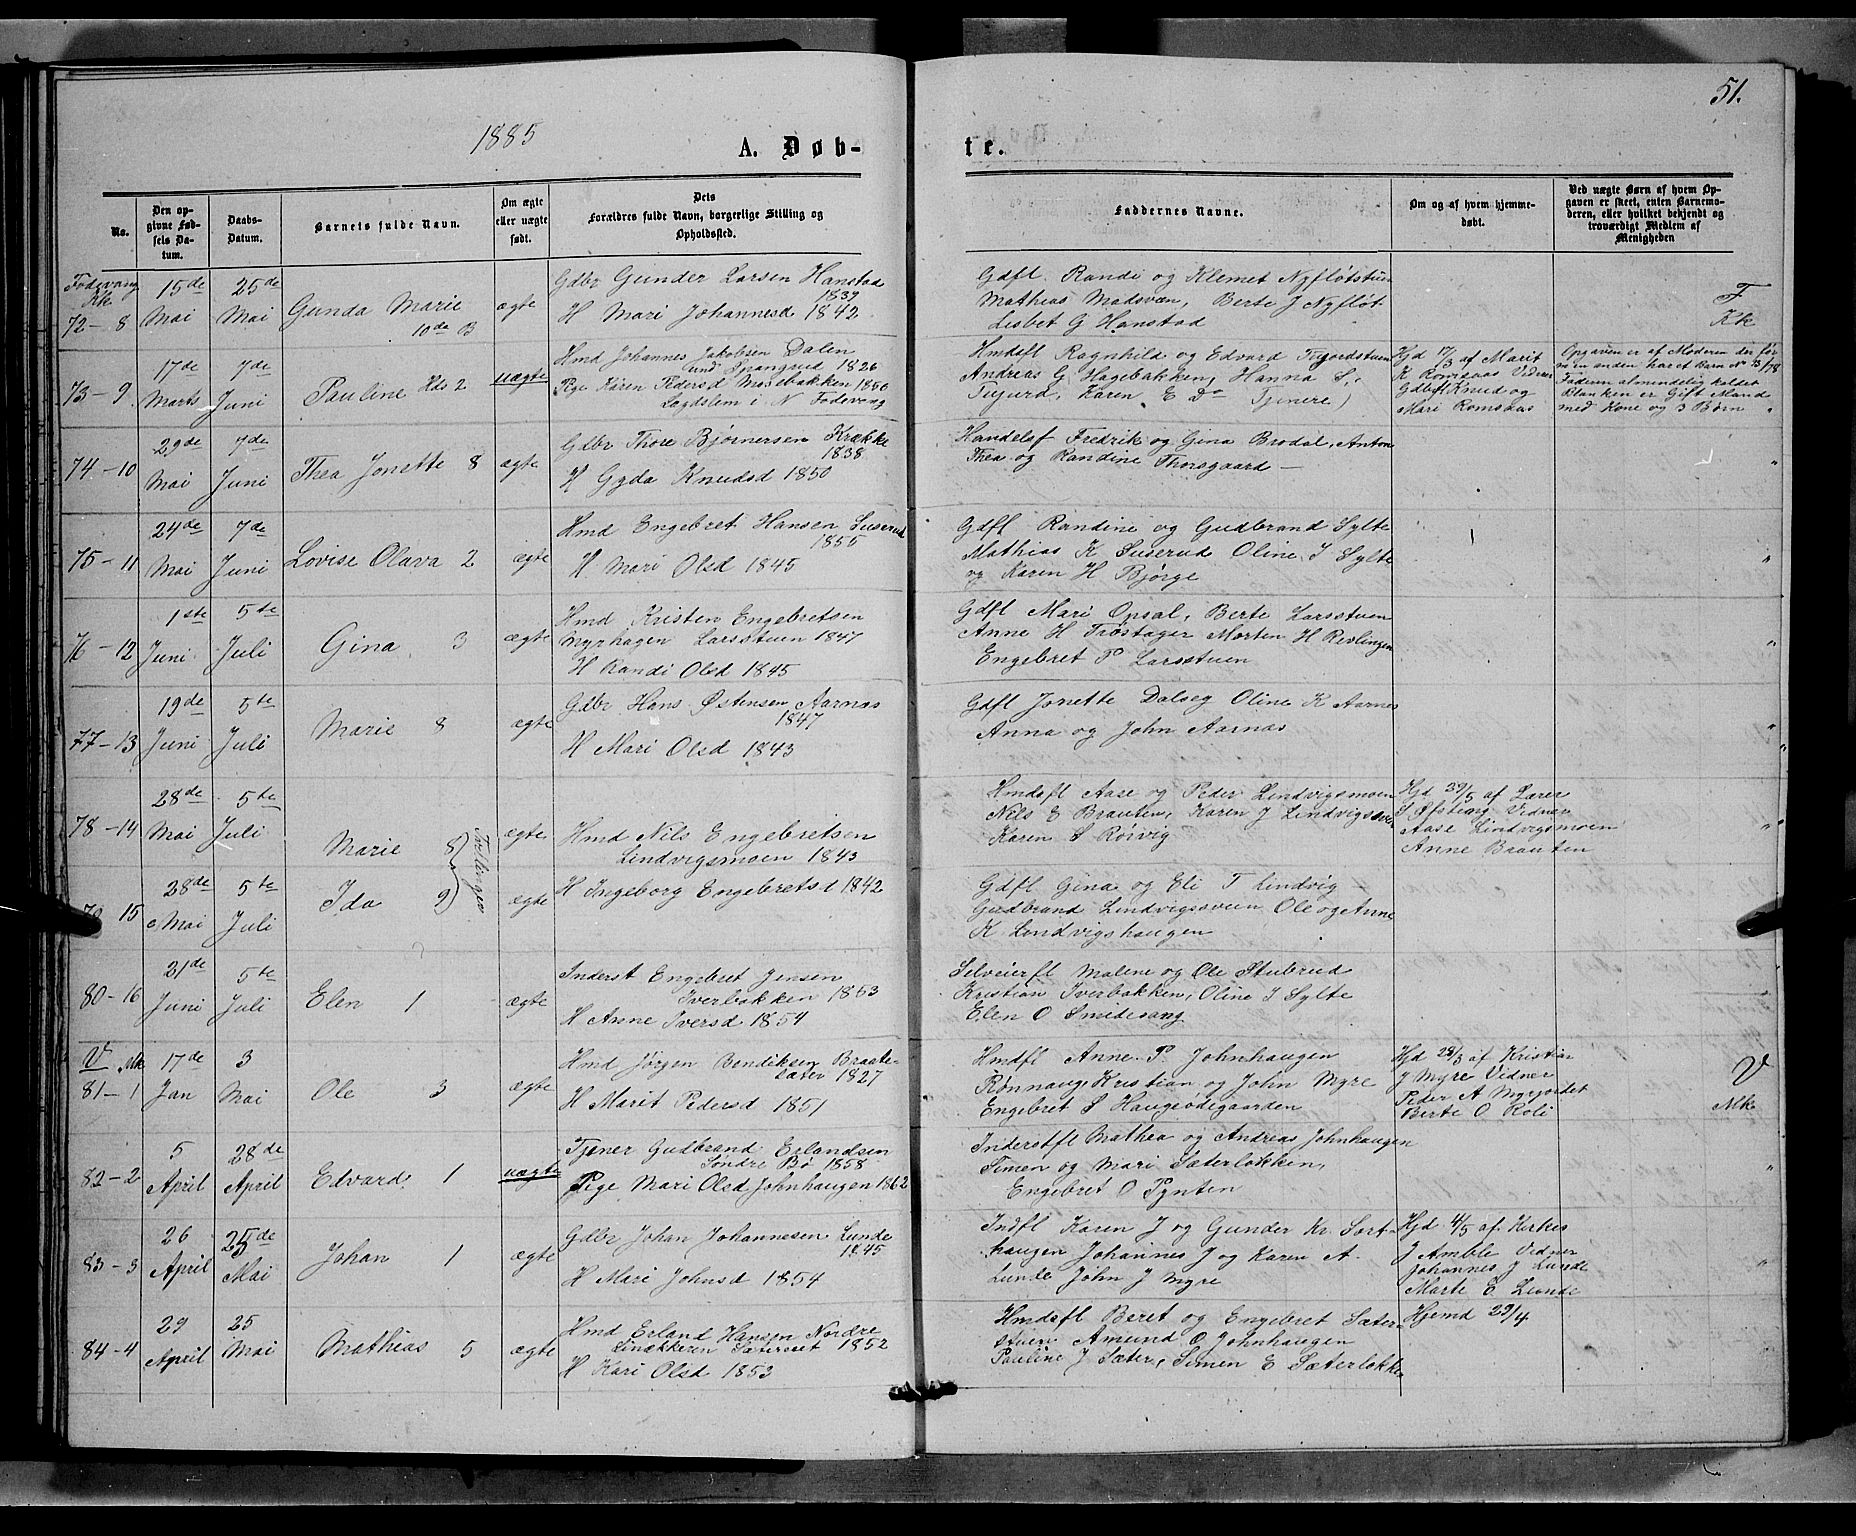 51.
1885
A. Døb-
te.
No.
Den op-
givne Fød-
sels Da-
tum.
Daabs-
Datum.
Barnets fulde Navn.
Om ægte
eller uægte
født.
Dets
Forældres fulde Navn, borgerlige Stilling og
Opholdssted.
Faddernes Navne.
Om og af hvem hjemme-
døbt.
Ved uægte Børn af hvem Op-
gaven er skeet, enten Barnemo-
deren, eller hvilket bekjendt og
troværdigt Medlem af
Menigheden
Fodevang
Kk
72-8
15de
Mai
25de
Mai
Gunda Marie
10de B
ægte
Gdbr Gunder Larsen Hanstad
1839
H Mari Johannesd 1842
Gdfl Randi og Klemet Nyfløtstuen
Mathias Madsveen, Berte J Nyfløt
Lisbet G Hanstad
F
Kk
73-9
17de
Marts
7de
Juni
Pauline Hds 2
uægte
Hmd Johannes Jakobsen Dalen
und Spangrud 1826
Pige Karen Pedersd Moebakken 1850
Lagdslem i N Fodevang
Hmdsfl Ragnhild og Edvard Tujordstuen
Andreas G Hagebakken, Hanna S,
Tujurd, Karen E Do Tjenere)
Hjd 17/3 af Marit
K Romsaas Vidner
Gdbrf Knud og
Mari Romsaas
Opgaven er af Moderen der før
m en anden har et barn No 13/78
Faderen almindelig kaldet
Blanken er Gift Mand
med Kone og 3 Børn "
74-10
29de
Mai
7de
Juni
Thea Jonette 8
ægte
Gdbr Thore Bjørnersen Krække
1838
H Gyda Knudsd 1850
Handelsf Fredrik og Gina Brodal, Anton
Thea og Randine Thorsgaard —
"
75-11
24de
Mai
7de
Juni
Lovise Olava 2
ægte
Hmd Engebret Hansen Suserud
1855
H Mari Olsd 1845
Gdfl Randine og Gudbrand Sylte
Mathias K Suserud Oline J Sylte
og Karen H Bjørge
"
76-12
1ste
Juni
5te
Juli
Gina 3
ægte
Hmd Kristen Engebretsen
Nyrhagen Larsstuen 1847
H Randi Olsd 1845
Gdfl Mari Opsal, Berte Larsstuen
Anne H Trøstager Morten H Revlingen
Engebret P Larsstuen
"
77-13
19de
Juni
5te
Juli
Marie 8
ægte
Gdbr Hans Østensen Aarnas
1847
H Mari Olsd 1843
Gdfl Jonette Dalseg Oline K Aarnes
Anna og John Aarnas
"
78-14
28de
Mai
5te
Juli
Marie 8
Tvillinger
ægte
Hmd Nils Engebretsen
Lindvigsmoen 1843
Hmdsfl Aase og Peder Lindvigsmoen
Nils E Brauten, Karen J Lindvigsveen
Karen S Rørvig
Hjd 29/5 af Lærer
S Øfsteng Vidner
Aase Lindvigsmoen
Anne Brauten
"
79-15
28de
Mai
5te
Juli
Ida 9
ægte
H Ingeborg Engebretsd 1842
Gdfl Gina og Eli T Lindvig
Gudbrand Lindvigsveen Ole og Anne
K Lindvigshaugen
80-16
21de
Juni
5te
Juli
Elen 1
ægte
Inderst Engebret Jensen
Iverbakken 1853
H Anne Iversd 1854
Selveierfl Malene og Ole Stubrud
Kristian Iverbakken, Oline J Sylte
Elen O Smidesang
V Mk
81-1
17de
Jan
3
Mai
Ole 3
ægte
Hmd Jørgen Bendiksen Braate-
sæter 1827
H Marit Pedersd 1851
Hmdfl Anne P. Johnhaugen
Rønnaug, Kristian og John Myre
Engebret S Haugsødegaarden
Hjd 23/3 af Kristian
J Myre Vidner
Peder A Myrjordet
Berte O Roli
V
Mk
82-2
5
April
28de
April
Edvard 1
uægte
Tjener Gudbrand Erlandsen
Søndre Bø 1858
Pige Mari Olsd Johnhaugen 1862
Inderstfl Mathea og Andreas Johnhaugen
Simen og Mari Sæterløkken,
Engebret O Pynten
"
83-3
26
April
25de
Mai
Johan 1
ægte
Gdbr Johan Johannesen Lunde
1845
H Mari Johnsd 1854
Indfl Karen J og Gunder Kr. Sort-
haugen Johannes J og Karen A
Lunde John J Myre
Hjd 4/5 af Kirkes
J Amble Vidner
Johannes J Lunde
Marte E Lunde
"
84-4
29
April
25
Mai
Mathias 5
ægte
Hmd Erland Hansen Nordre
Linækkeren Sæterset 1852
H Kari Olsd 1853
Hmdsfl Beret og Engebret Sæter-
stuen Amund O Johnhaugen
Pauline J Sæter, Simen E Sæterløkke
Hjemd 29/4